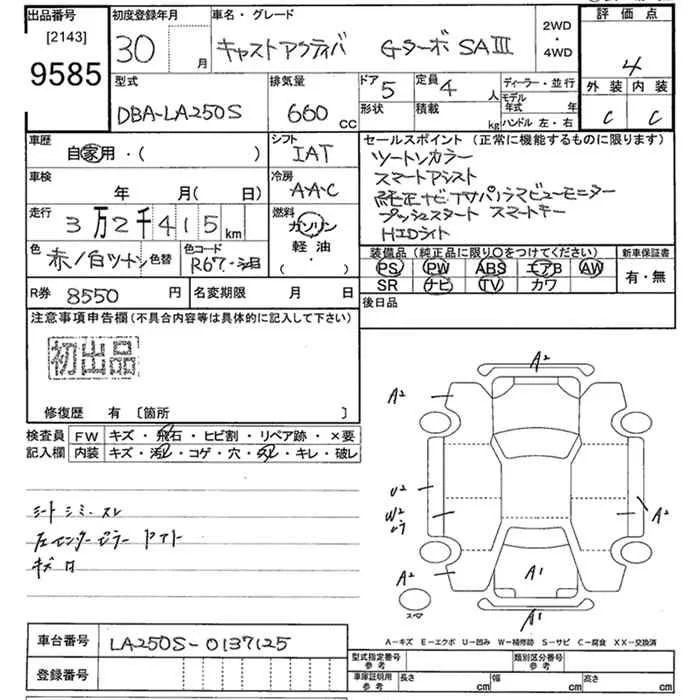 出品番号
[2143]
9585
初度登録年月
30 月
車名・グレード
キャストアクティバ Gターボ SAⅢ
2WD
・
4WD
評価点
4
外装 内装
C C
型式
DBA-LA250S
排気量
660 CC
ドア 5
形状
定員 4 人
積載 kg
ディーラー・並行
モデル年式 年
ハンドル 左・右
車歴
自家用・( )
シフト
IAT
車検
年 月(日)
冷房
AAC
走行
3万2千415km
燃料
ガソリン
軽油
・( )
色
赤/白ツートン 色替
色コード
R67
R券 8550 円
名変期限 月 日
セールスポイント(正常に機能するものに限ります)
ツートンカラー
スマートアシスト
純正ナビTVパノラマビューモニター
プッシュスタート スマートキー
HIDライト
装備品(純正品に限り○をつけてください)
PS PW ABS エアB AW
SR ナビ TV カワ
新車保証書
有・無
後日品
注意事項申告欄(不具合内容等は具体的に記入して下さい)
初出品
修復歴 有〔箇所 〕
検査員記入欄
FW キズ・飛石・ヒビ割・リペア跡・×要
内装 キズ・汚レ・コゲ・穴・スレ・キレ・破レ
シートシミ・スレ
左センターピラー
キズ
A2
A2
A2
U2
W2
A2
A2
A2
A1
A1
スペア
A-キズ E-エクボ U-凹み W-補修跡 S-サビ C-腐食 XX-交換済
車台番号 LA250S-0137125
登録番号
型式指定番号参考
類別区分番号参考
車庫証明用参考 長さ cm 幅 cm 高さ cm